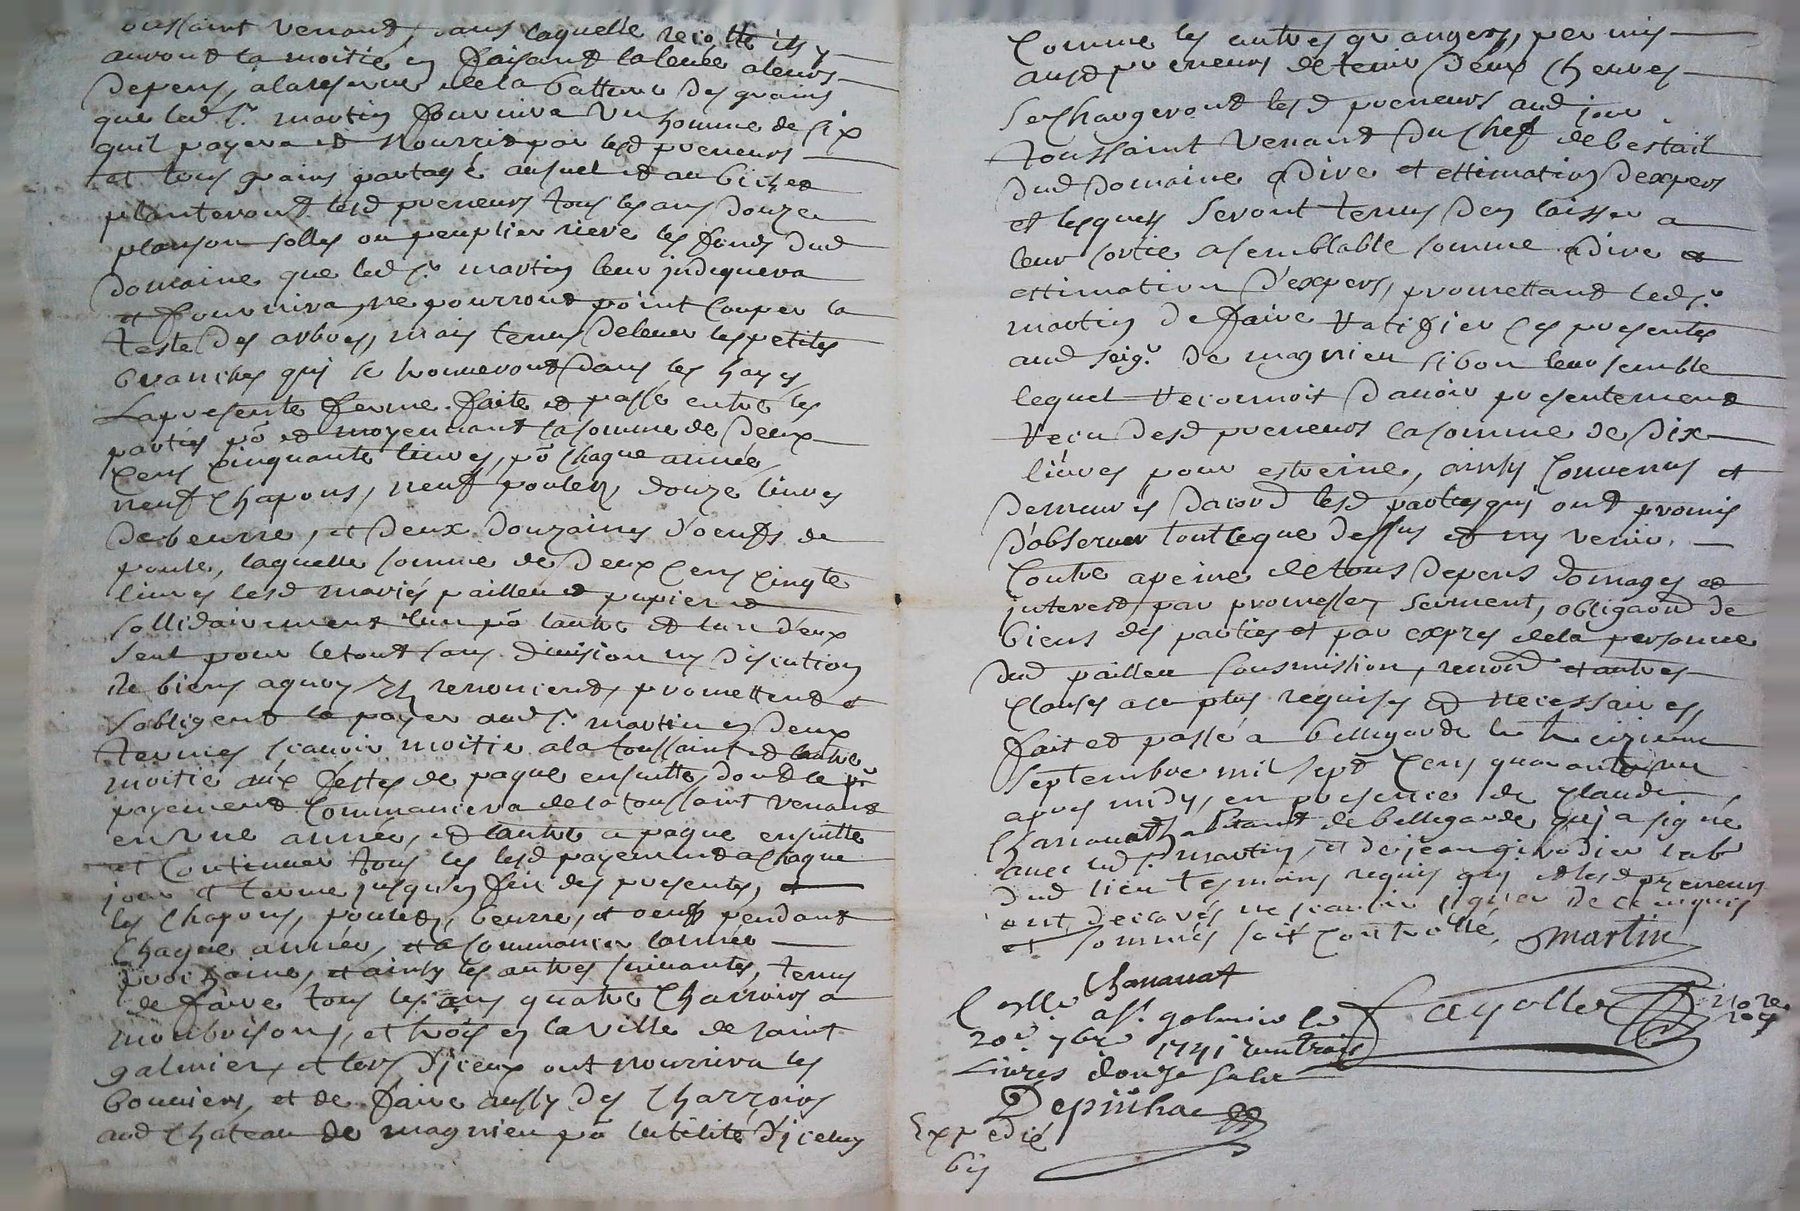 toussaint venant, dans laquelle recolte ils y
auront la moitié en faisant la levée a leurs
depens, a la reserve de la batture des grains
que led sr. martin fournira un homme de six
quil payera et nourrit par lesd preneurs
et tous grains partagé au suel et au bichet
planteront lesd preneurs tous les ans douze
planson solles ou peuplier rieve les fonds dud
domaine que led sr. martin leur indiquera
et fournira, ne pourront point couper la
teste des arbres, mais tenus delever les petites
branches quy se trouveront dans les hayes
La presente ferme faite et passé entre les
parties pō et moyennant la somme de deux
cens cinquante livres, pō chaque année,
neuf chapons, neuf poulets, douze livres
de beurre, et deux douzaines d'oeufs de
poule, laquelle somme de deux cens cinqte
livres lesd mariés pailleu et
sollidairement lun pō lautre et lun d'eux
seul pour le tout sans division ny discution
de biens a quoy ils renoncient, promettent et
sobligent la payer aud sr. martin en deux
termes scavoir moitié a la toussaint et lautre
moitié aux festes de paque ensuitte, dont le pr
payement commancera de la toussaint venant
en une année, et lautre a paque ensuitte
et continuer tous les lesd payement a chaque
jour et terme jusqu'en fin des presentes, et
les chapons, poulets, beurre, et oeufs pendant
chaque année, et a commancer lannée
prochaine, et ainsy les autres suivantes, tenus
de faire tous les ans quatre charrois a
monbrison, et trois en la ville de saint
galmier, et lors d'iceux ont nourrira les
bouviers, et de faire aussy des charrois
aud chateau de magnieu pō lutilité d'iceluy
comme les autres grangers, permis
ausd preneurs de tenir deux chevres
se chargeront lesd preneurs aud jour
toussaint venant du chef de bestail
dud domaine a dire et estimation dexpers
et lesquels seront tenus den laisser a
leur sortie a semblable somme a dire et
estimation d'expers, promettant led sr.
martin de faire ratifier ces presentes
aud seigr. de magnieu si bon leur semble
lequel reconnoit davoir presentement
recu desd preneurs la somme de dix
livres pour estreine, ainsy convenus et
demeurés dacord lesd parties quy ont promis
d'observer tout ce que dessus et ny venir
contre a peine de tous depens domages et
interest par promesses, serment, obligaōn de
biens des parties et par expres de la personne
dud pailleu sousmission, renond et autres
clauses a ce plus requises et necessaires,
fait et passé a bellegarde le treizieme
septembre mil sept cens quarante un
apres midy, en presence de claude
Chanauat habitant de bellegarde quj a signé
avec led sr. martin, et de jean girodier lab
dud lieu tesmoins requis quy et lesd preneurs
ont declarés ne scavoir signer de ce enquis
et sommés soit controllé, Martin
Chanauat
Conllé a St. galmier le
Fayolle nore
20e. 7bre 1741 recu trois
Livres douze sols
Depinhac
Expedié
bis